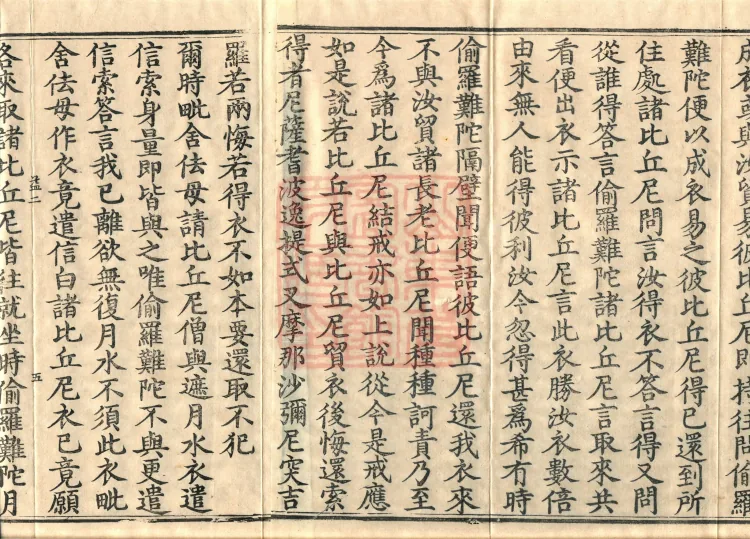 難陀便以成衣易之彼比丘尼得已還到所
住處諸比丘尼問言汝得衣不答言得又問
從誰得答言偷羅難陀諸比丘尼言取來共
看便出衣示諸比丘尼言此衣勝汝衣數倍
由來無人能得彼利汝今忽得甚爲希有時
偷羅難陀隔壁聞便語彼比丘尼還我衣來
不與汝貿諸長老比丘尼聞種種訶責乃至
今爲諸比丘尼結戒亦如上說從今是戒應
如是說若比丘尼與比丘尼貿衣後悔還索
得者尼薩耆波逸提式叉摩那沙彌尼突吉
羅若兩悔若得衣不如本要還取不犯
爾時毗舍佉母請比丘尼僧與遮月水衣遣
信索身量即皆與之唯偷羅難陀不與更遣
信索答言我已離欲無復月水不須此衣毗
舍佉母作衣竟遣信白諸比丘尼衣已竟願
孟二 五
各來取諸比丘尼皆往就坐時偷羅難陀月